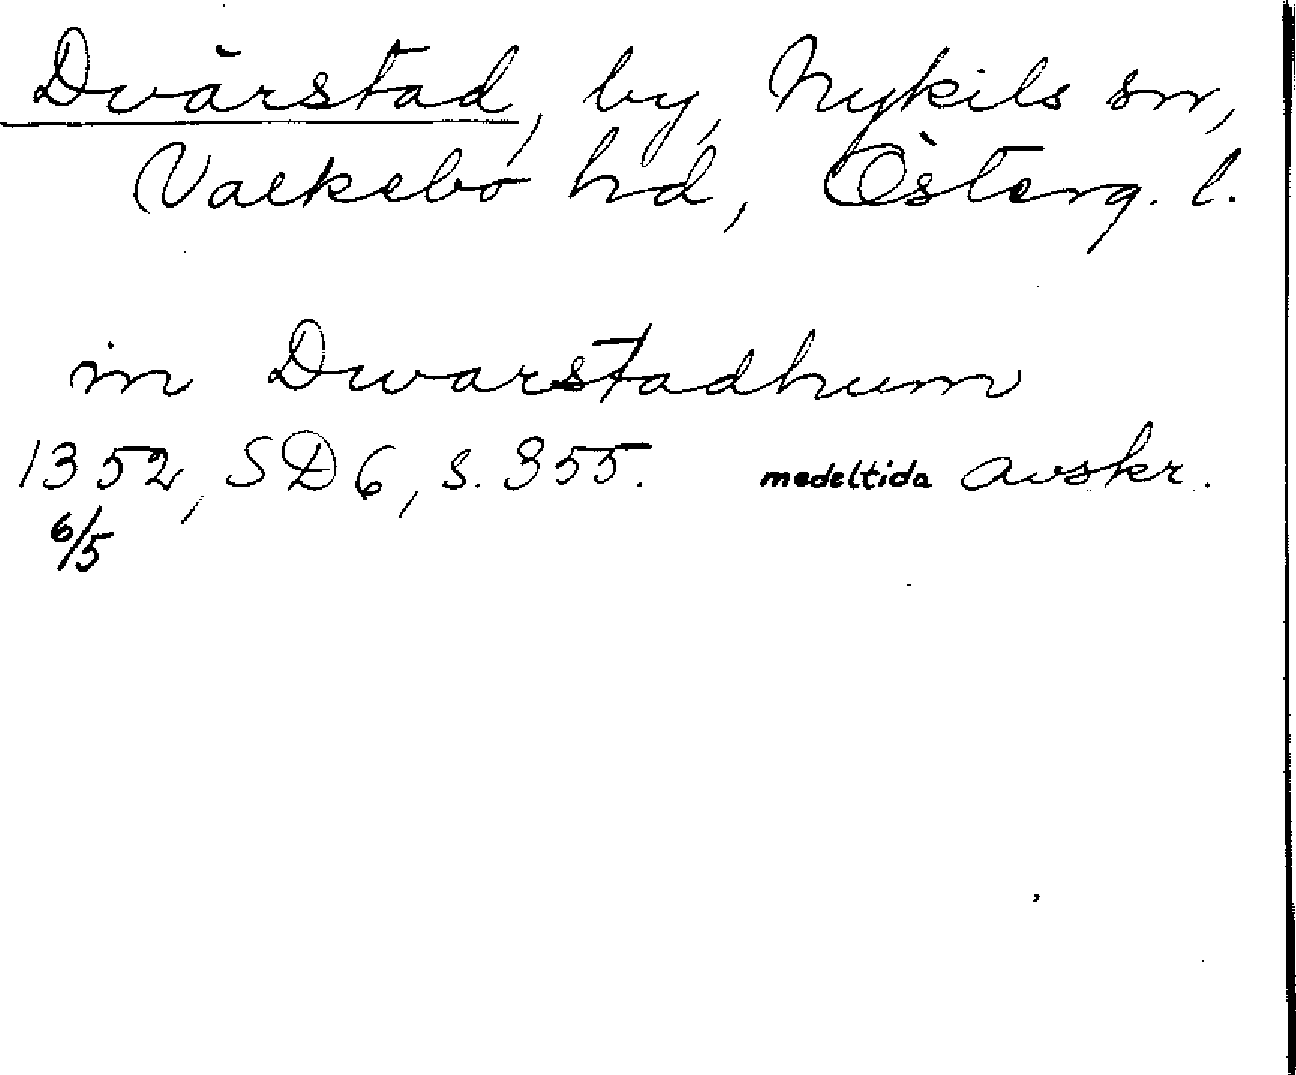 Dvärstad, by, Nykils sn,
Valkebo hd, Österg. l.
in Dwarstadhum
1352, SD 6, s. 355. medeltida avskr.
6/5